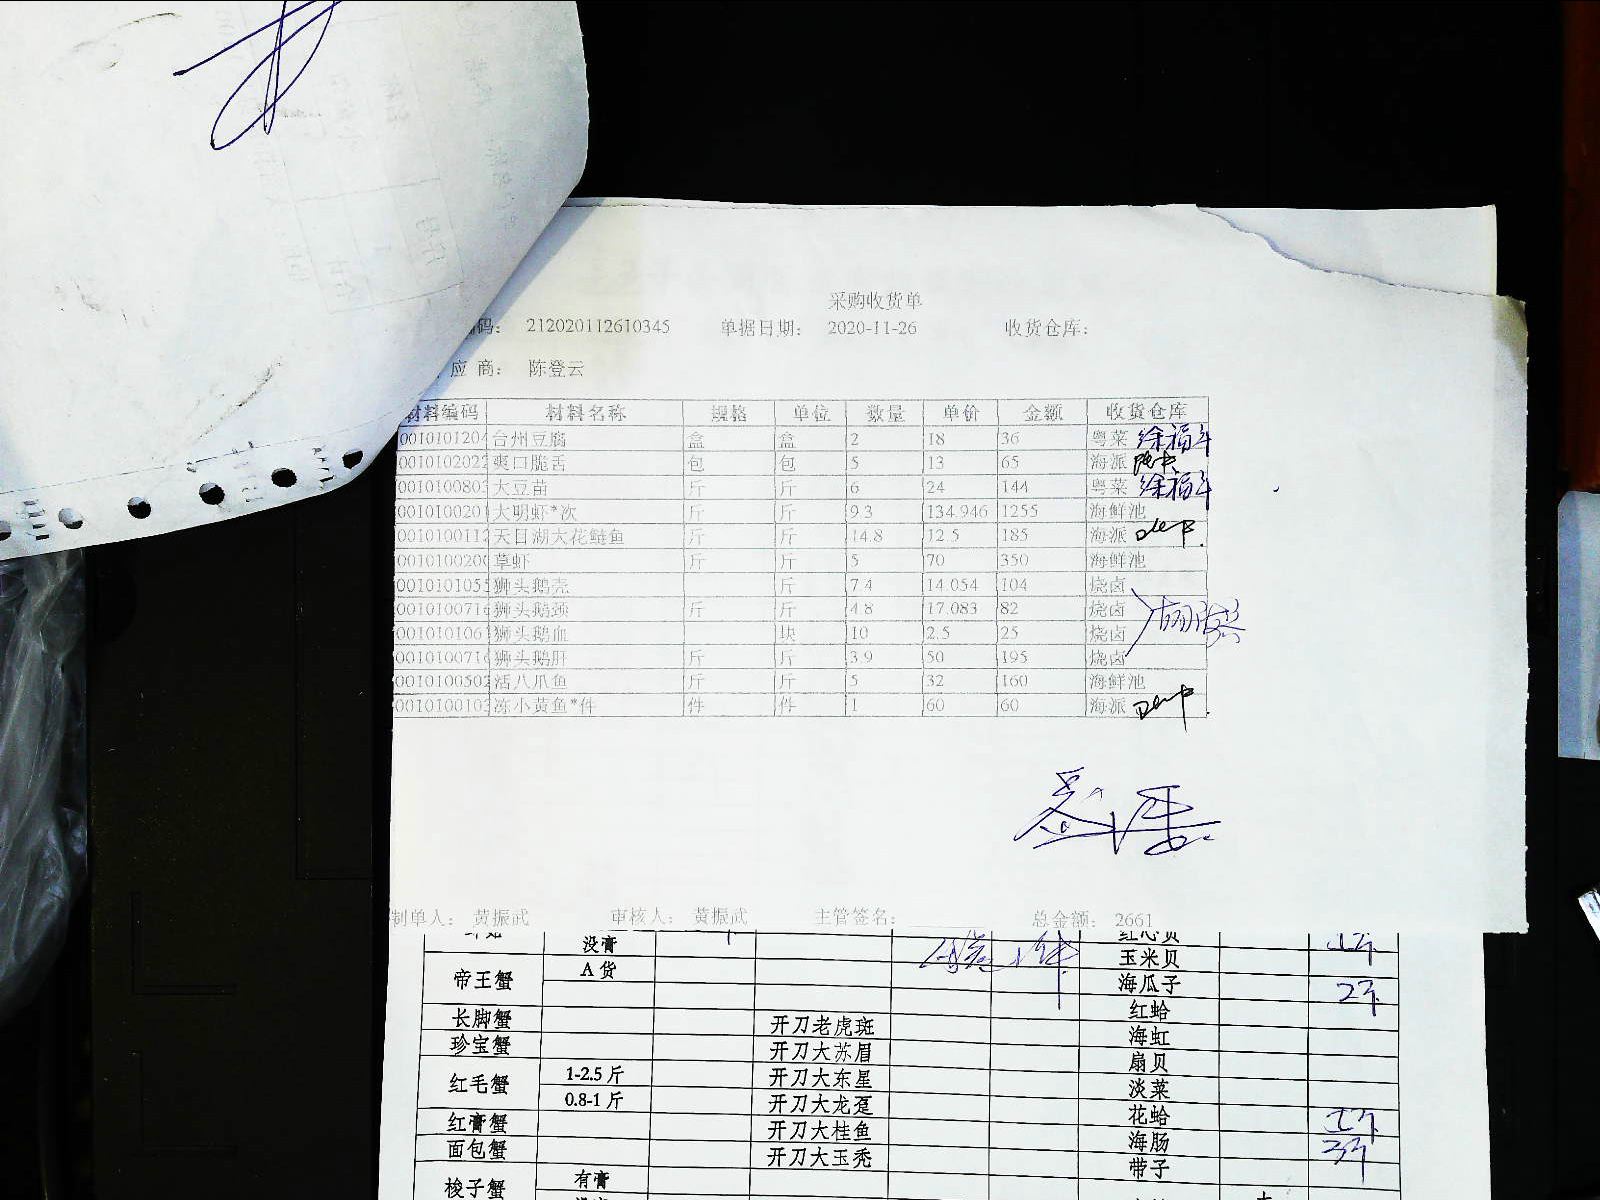 采购收货单
码： 212020112610345 单据日期： 2020-11-26 收货仓库：
应 商： 陈登云
材料编码 材料名称 规格 单位 数量 单价 金额 收货仓库
0010101204 台州豆腐 盒 盒 2 18 36 粤菜
0010102022 爽口脆舌 包 包 5 13 65 海派
0010100803 大豆苗 斤 斤 6 24 144 粤菜
0010100201 大明虾*次 斤 斤 9.3 134.946 1255 海鲜池
0010100112 天目湖大花鲢鱼 斤 斤 14.8 12.5 185 海派
001010020 草虾 斤 斤 5 70 350 海鲜池
0010101055 狮头鹅壳 斤 7.4 14.054 104 烧卤
0010100716 狮头鹅颈 斤 斤 4.8 17.083 82 烧卤
001010106 狮头鹅血 块 10 2.5 25 烧卤
001010071 狮头鹅肝 斤 斤 3.9 50 195 烧卤
0010100502 活八爪鱼 斤 斤 5 32 160 海鲜池
0010100103 冻小黄鱼*件 件 件 1 60 60 海派
制单人： 黄振武 审核人： 黄振武 主管签名： 总金额： 2661
没膏 红心贝
帝王蟹 A 货 玉米贝
海瓜子 2斤
长脚蟹 开刀老虎斑 红蛤
珍宝蟹 开刀大苏眉 海虹
红毛蟹 1-2.5 斤 开刀大东星 扇贝
0.8-1 斤 开刀大龙趸 淡菜
红膏蟹 开刀大桂鱼 花蛤
面包蟹 开刀大玉秃 海肠 3斤
梭子蟹 有膏 带子